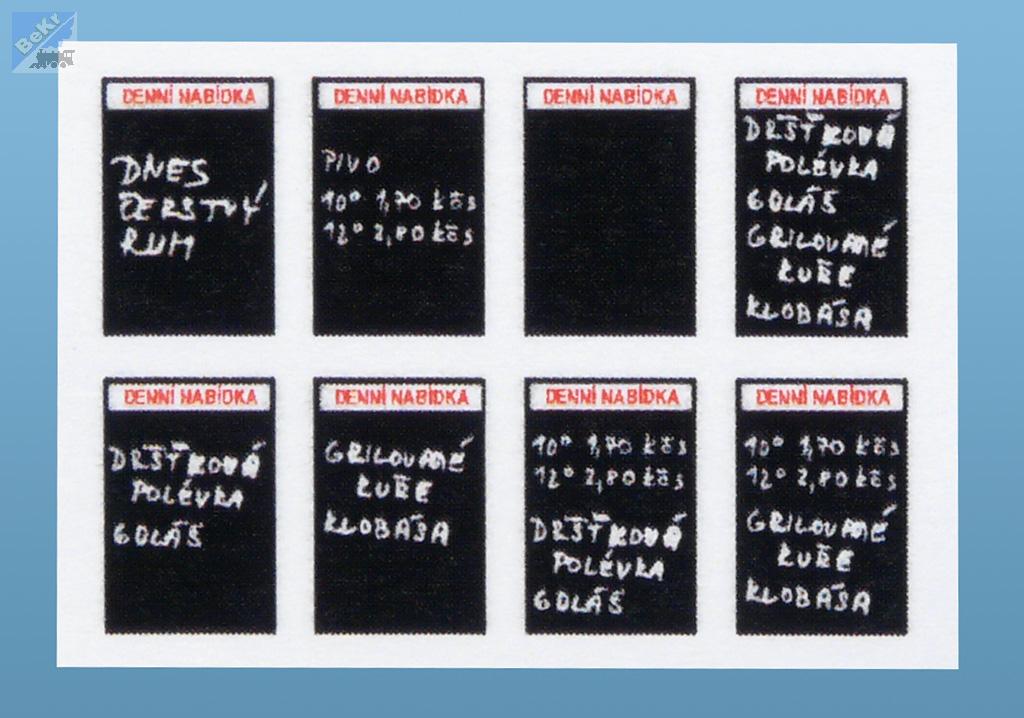 BeKr
DENNÍ NABÍDKA
DNES
ČERSTVÝ
RUM
DENNÍ NABÍDKA
PIVO
10° 1,70 kčs
12° 2,80 kčs
DENNÍ NABÍDKA
DENNÍ NABÍDKA
DRŠŤKOVÁ
POLÉVKA
GULÁŠ
GRILOVANÉ
KUŘE
KLOBÁSA
DENNÍ NABÍDKA
DRŠŤKOVÁ
POLÉVKA
GULÁŠ
DENNÍ NABÍDKA
GRILOVANÉ
KUŘE
KLOBÁSA
DENNÍ NABÍDKA
10° 1,70 kčs
12° 2,80 kčs
DRŠŤKOVÁ
POLÉVKA
GULÁŠ
DENNÍ NABÍDKA
10° 1,70 kčs
12° 2,80 kčs
GRILOVANÉ
KUŘE
KLOBÁSA